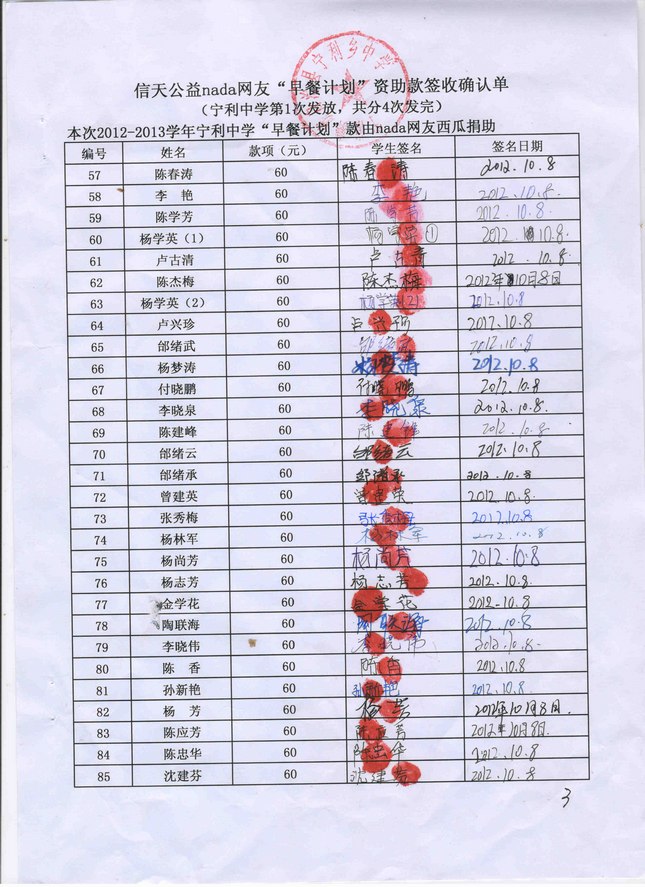 宁利乡中学
信天公益nada网友“早餐计划”资助款签收确认单
（宁利中学第1次发放，共分4次发完）
本次2012-2013学年宁利中学“早餐计划”款由nada网友西瓜捐助
编号 姓名 款项（元） 学生签名 签名日期
57 陈春涛 60 陈春涛 2012.10.8
58 李 艳 60 李艳 2012.10.8.
59 陈学芳 60 陈学芳 2012.10.8.
60 杨学英（1） 60 杨学英① 2012. 10.8.
61 卢古清 60 卢古清 2012.10.8.
62 陈杰梅 60 陈杰梅 2012年10月8日
63 杨学英（2） 60 杨学英(2) 2012.10.8
64 卢兴珍 60 卢兴珍 2012.10.8
65 邰绪武 60 2012.10.8
66 杨梦涛 60 2012.10.8
67 付晓鹏 60 付晓鹏 2012.10.8
68 李晓泉 60 李晓泉 2012.10.8.
69 陈建峰 60 陈建峰 2012.10.8.
70 邰绪云 60 邰绪云 2012.10.8
71 邰绪承 60 邰绪承 2012.10.8.
72 曾建英 60 2012.10.8.
73 张秀梅 60 张秀梅 2012.10.8
74 杨林军 60 杨林军 2012.10.8.
75 杨尚芳 60 杨尚芳 2012.10.8
76 杨志芳 60 杨志芳 2012.10.8.
77 金学花 60 金学花 2012-10.8
78 陶联海 60 陶联海 2012.10.8
79 李晓伟 60 李晓伟 2012.10.8.
80 陈 香 60 陈香 2012.10.8
81 孙新艳 60 孙新艳 2012.10.8
82 杨 芳 60 杨芳 2012年10月8日.
83 陈应芳 60 陈应芳 2012年10月8日.
84 陈忠华 60 陈忠华 2012.10.8
85 沈建芬 60 沈建芬 2012.10.8
3